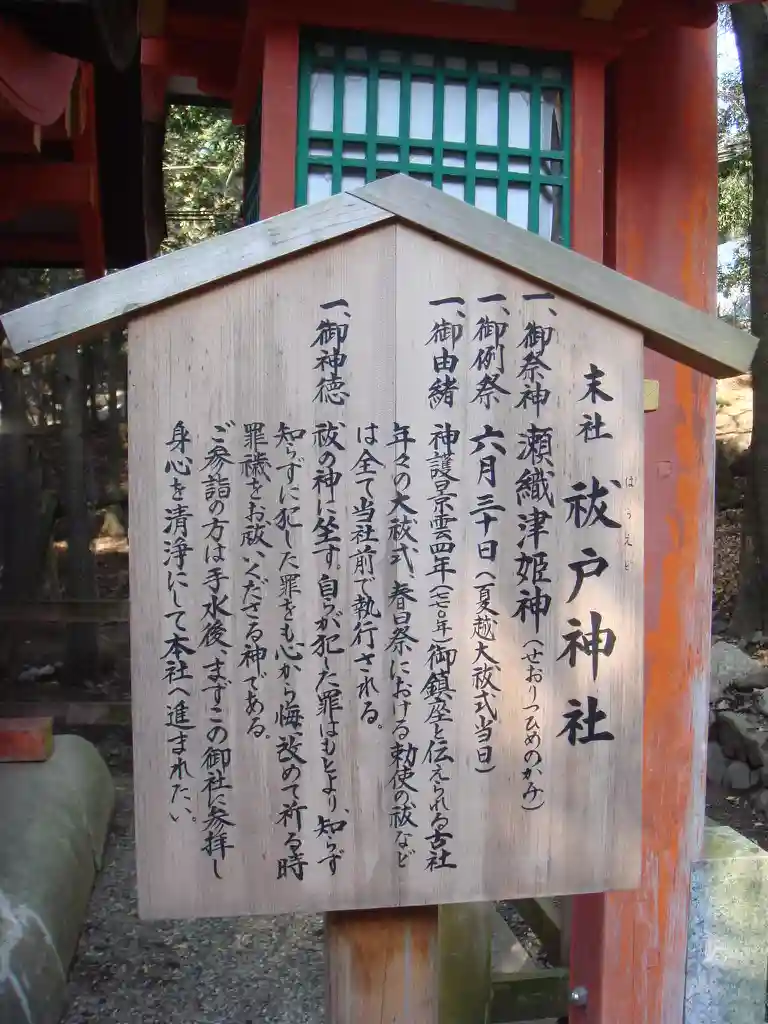 末社 祓戸神社
はらえど
一、御祭神 瀬織津姫神(せおりつひめのかみ)
一、御例祭 六月三十日(夏越大祓式当日)
一、御由緒 神護景雲四年(七七〇年)御鎮座と伝えられる古社
年々の大祓式、春日祭における勅使の祓など
は全て当社前で執行される。
一、御神徳 祓の神に坐す。自らが犯した罪はもとより、知らず
知らずに犯した罪をも心から悔い改めて祈る時
罪穢をお祓いくださる神である。
ご参詣の方は手水後、まずこの御社に参拝し
身心を清浄にして本社へ進まれたい。